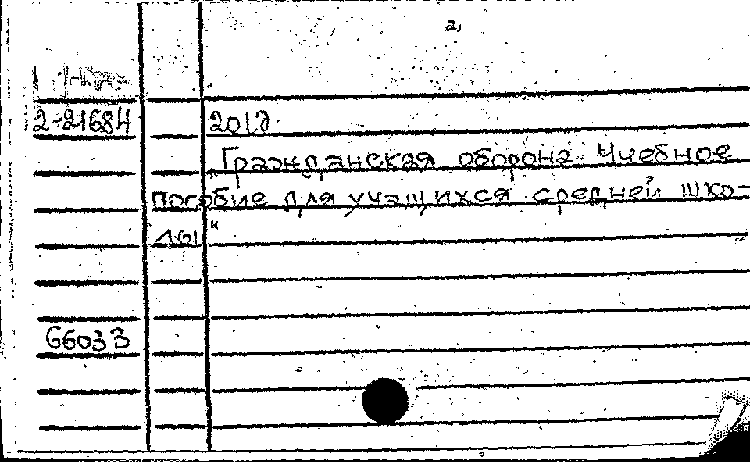 2,
2-21684 2017
„Гражданская оборона. Учебное
пособие для учащихся средней шко-
лы"
66033